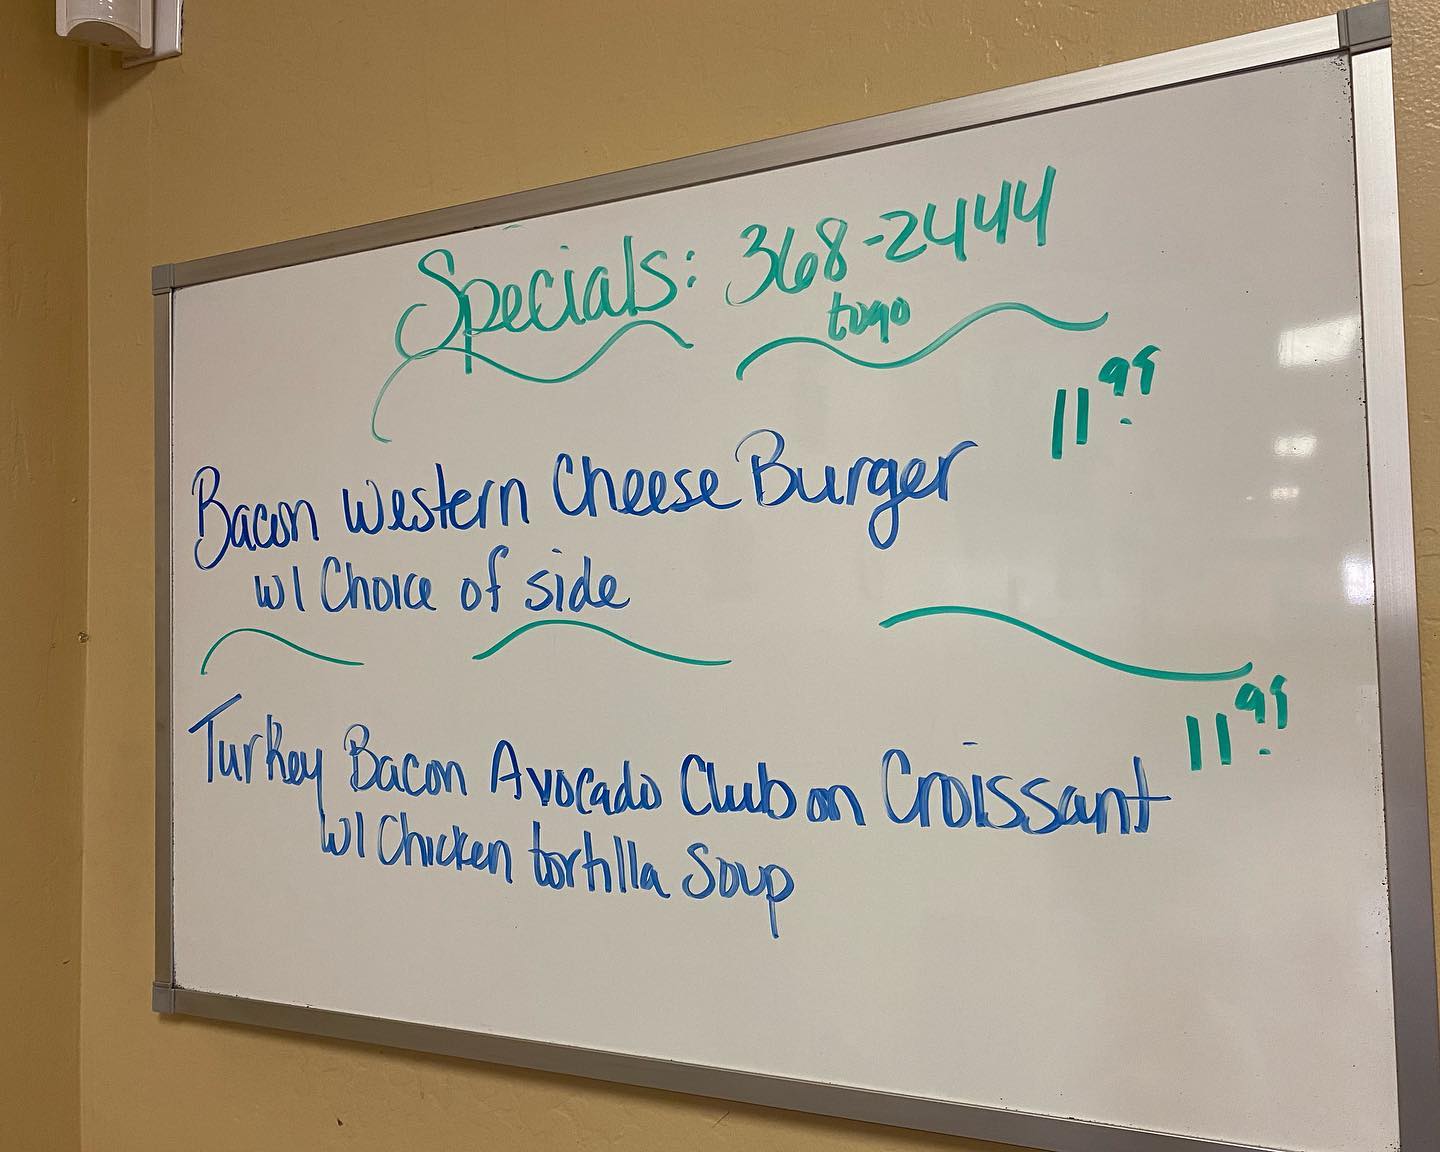 Specials: 368-2444
togo
11.99
Bacon Western Cheese Burger
w/ Choice of side
11.99
Turkey Bacon Avocado Club on Croissant
w/ Chicken tortilla Soup